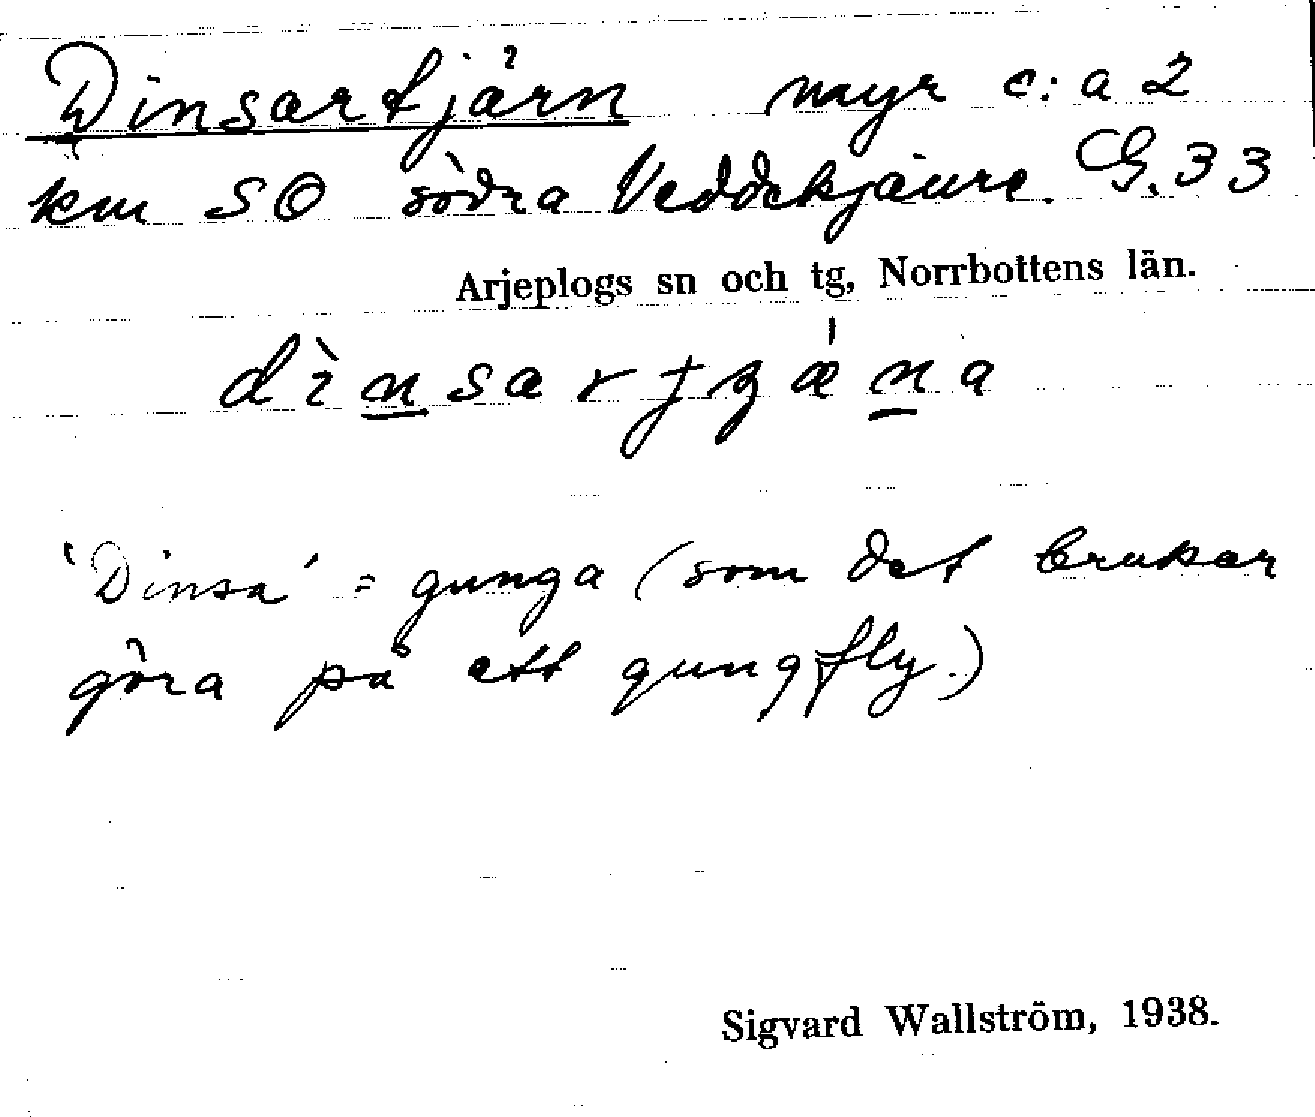 Dinsartjärn myr c:a 2
km SO södra Veddekjaure. G. 33
Arjeplogs sn och tg, Norrbottens län.
'Dinsa' = gunga (som det brukar
göra på ett gungfly.)
Sigvard Wallström, 1938.